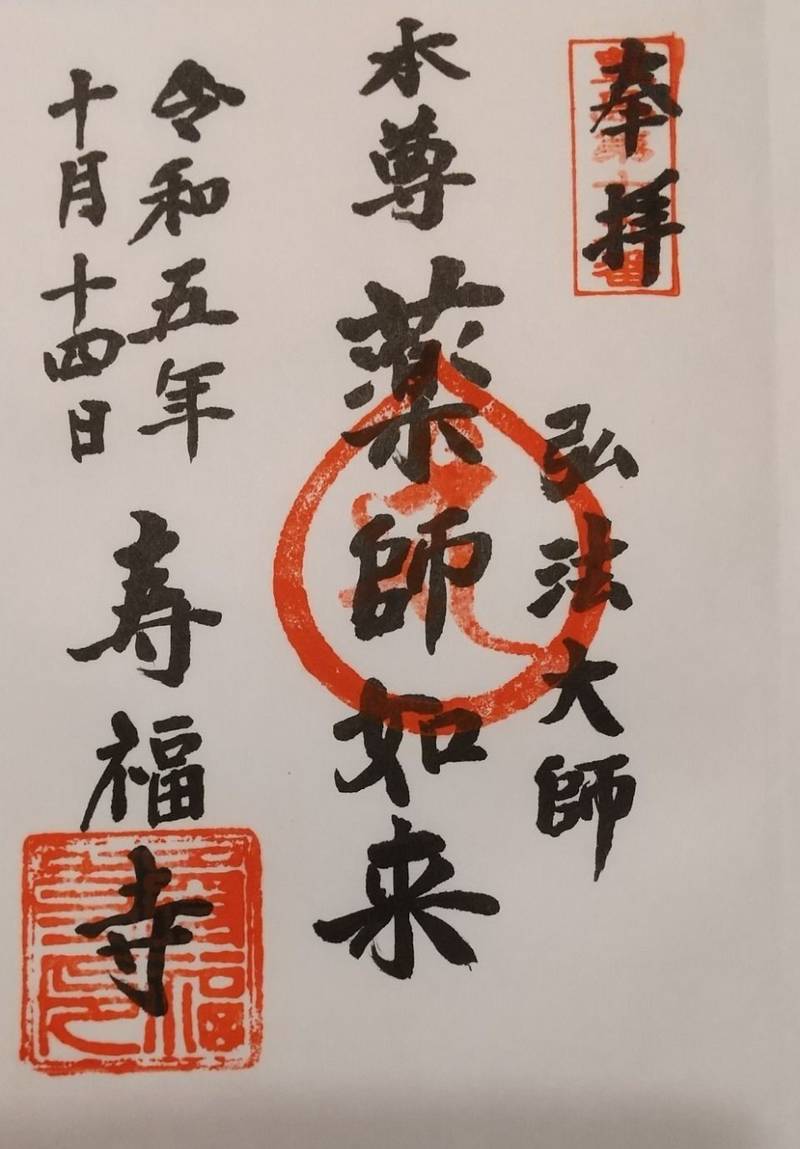 奉拝
弘法大師
本尊 薬師如来
令和五年
十月十四日
寿福寺